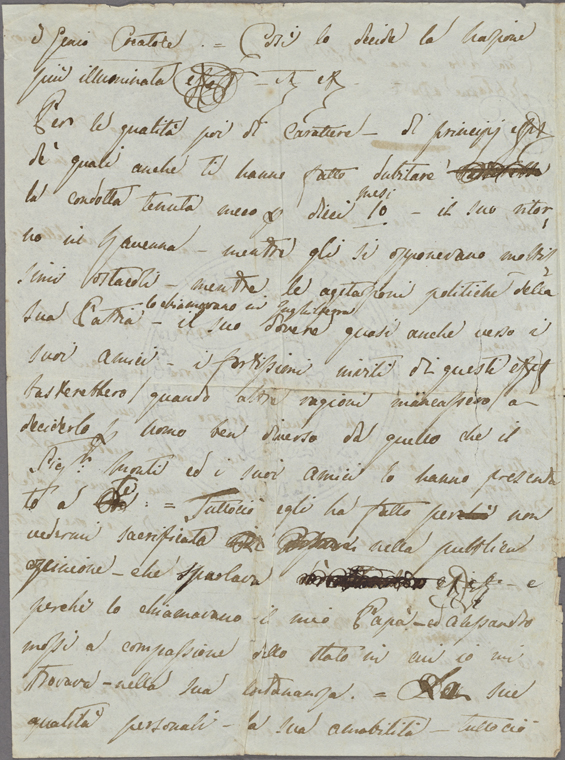 il Genio Creatore. = Così lo decide la Nazione
più illuminata
Per le qualità poi di Carattere - di principj
de' quali anche ti hanno fatto dubitare
la condotta tenuta meco dieci mesi 10 - il suo ritor
no in Ravenna - mentre gli si opponevano moltis
simi ostacoli - mentre le agitazioni politiche della
sua Patria - lo chiamavano in Inghilterra il suo dovere quasi anche verso i
suoi amici - i fortissimi inviti di questi
basterebbero / quando altre ragioni mancassero a
deciderlo p uomo ben diverso da quello che il
Sig.r Monti ed i suoi amici lo hanno presenta
to a te. = Tuttociò egli ha fatto per non
vedermi sacrificata nella pubblica
opinione - che sparlava - e
perchè lo chiamavano il mio Papà - ed Alessandro
mossi a compassione dello stato in cui io mi
trovava - nella sua lontananza. = Le sue
qualità personali - la sua amabilità - tuttociò